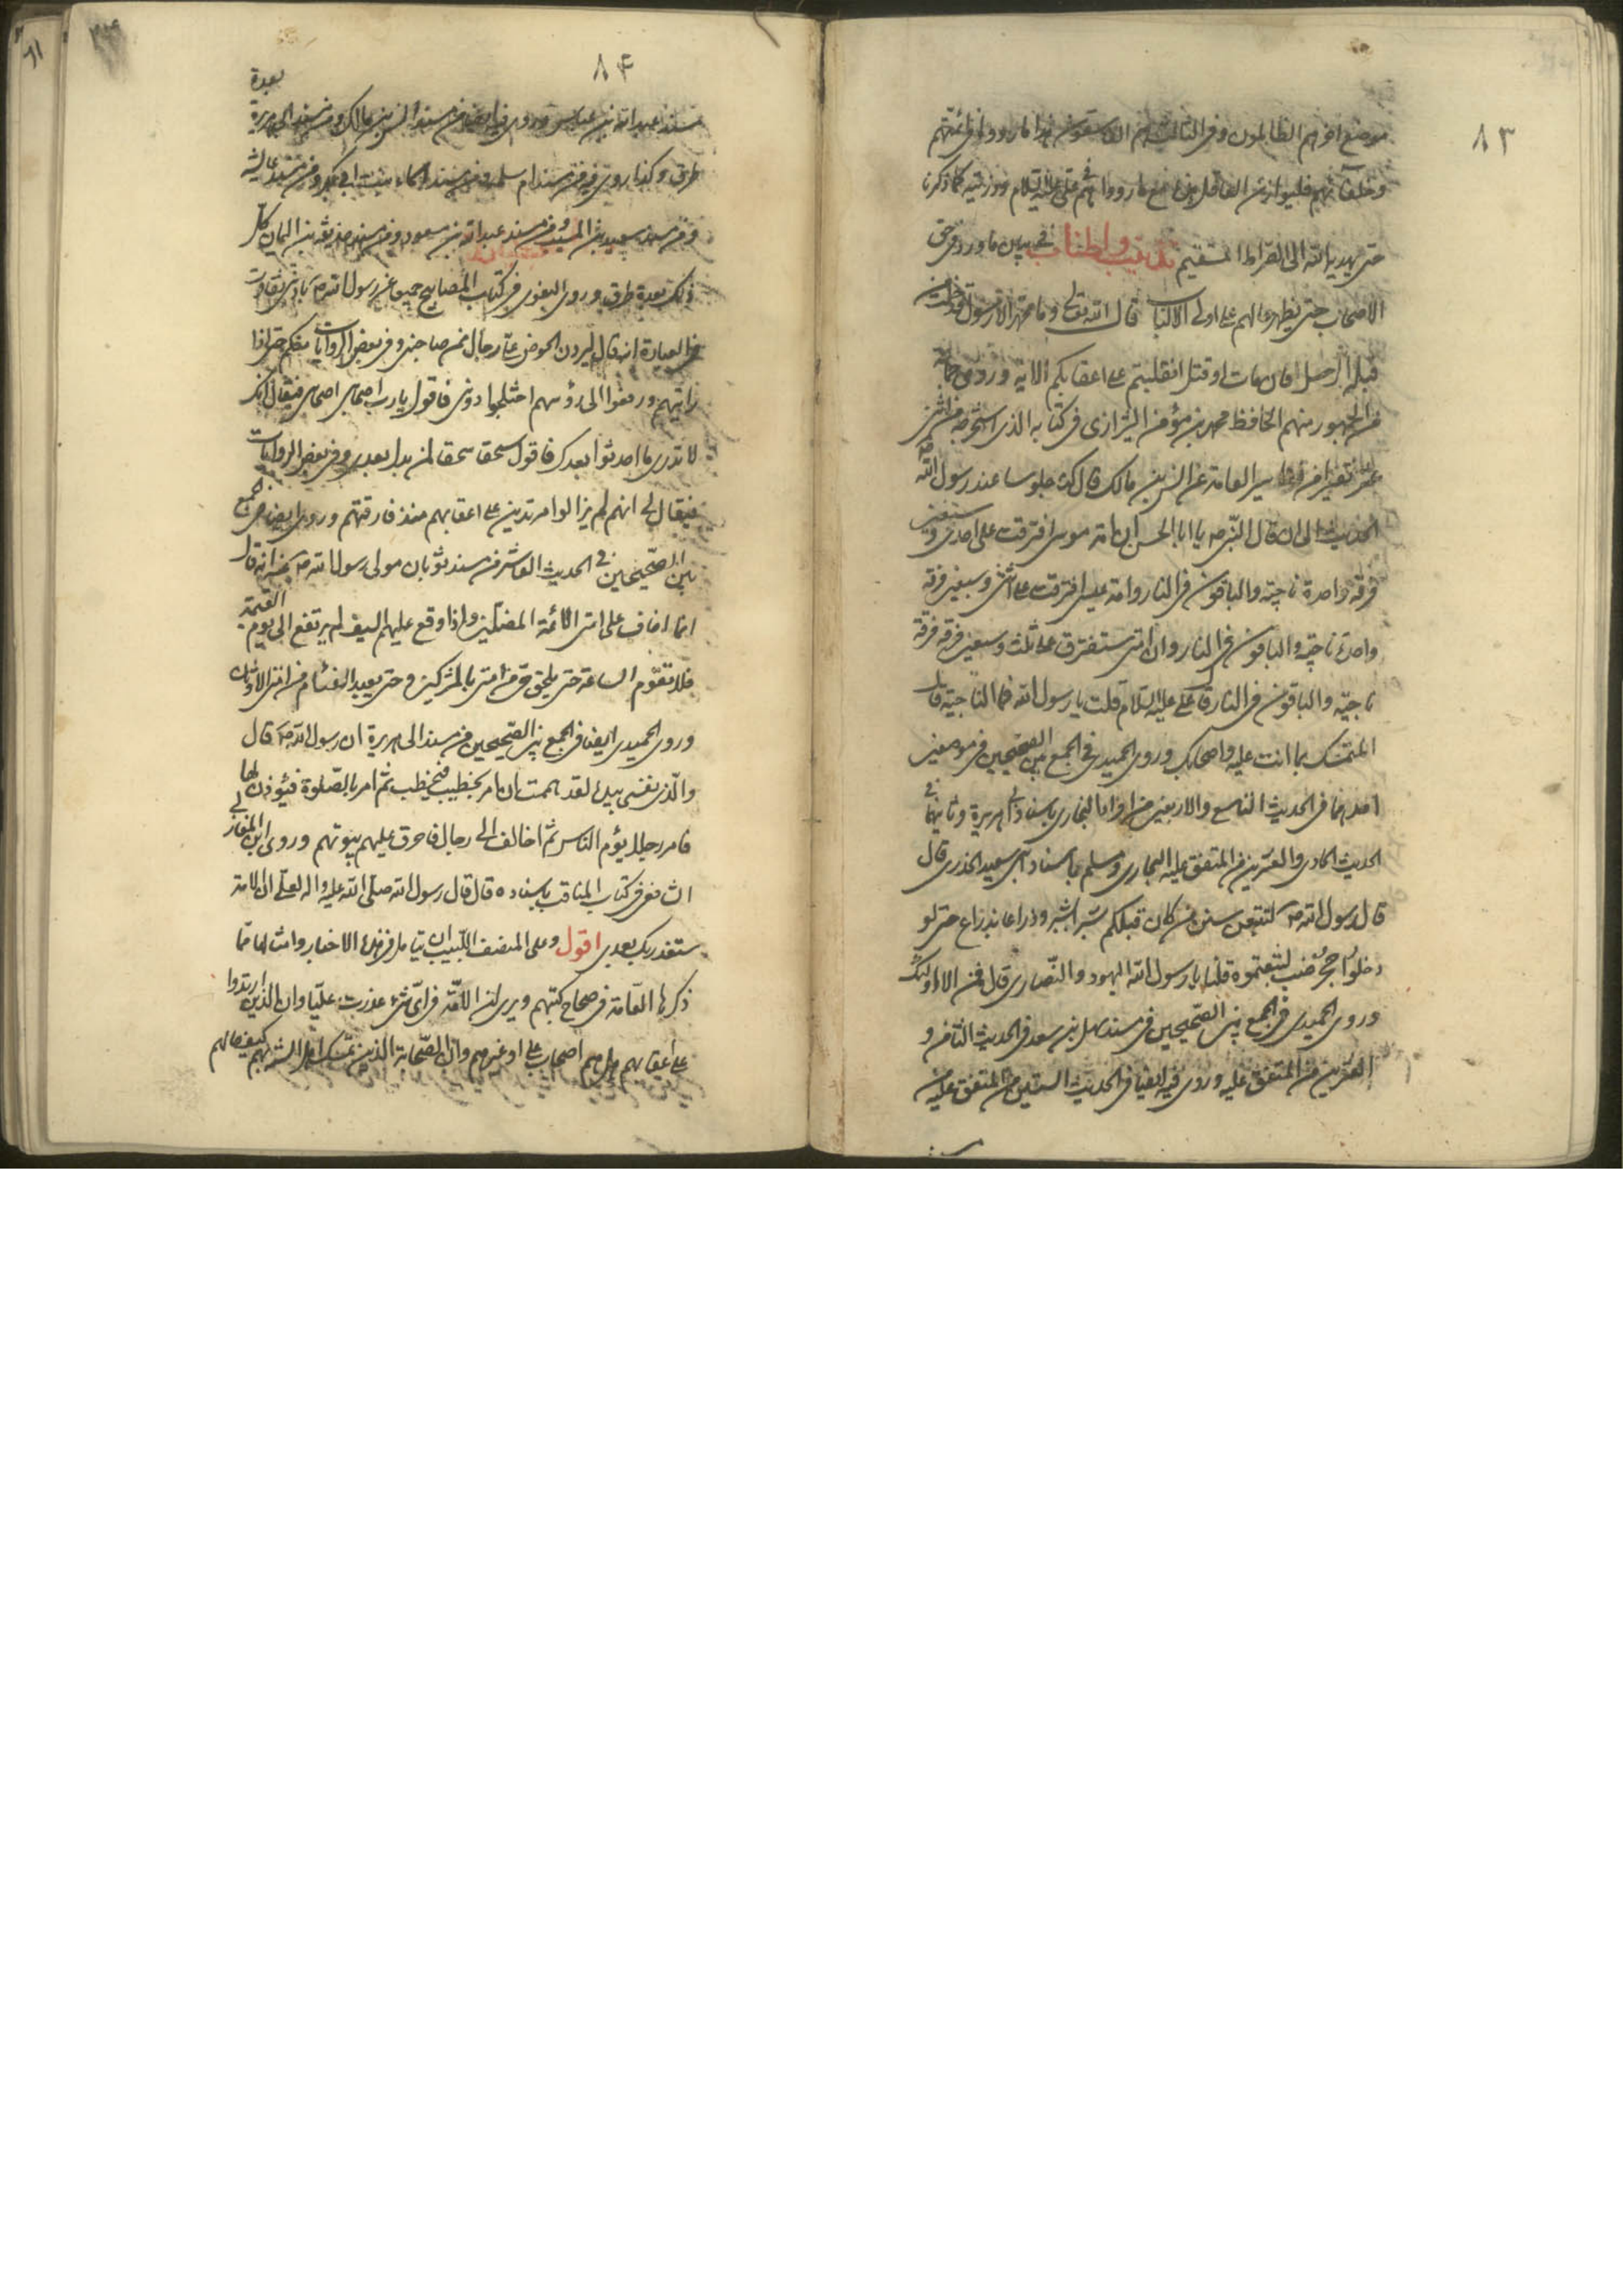 ٨٣
موضع اخر هم الظالمون وفي الثالث هم الفاسقون هذا ما رووا في ائمتهم
وخلفائهم فليوازن العاقل هذا مع ما رووا هم في علي عليه السلام وذريته كما ذكرنا
حتى يهديه الله الى الصراط المستقيم تذنيب واطناب في بيان ما ورد في حق
الاصحاب حتى يظهر حالهم على اولى الالباب قال الله تعالى وما محمد الا رسول قد خلت من
قبله الرسل افان مات او قتل انقلبتم على اعقابكم الاية وروى جماعة
من الجمهور منهم الحافظ محمد بن مؤمن الشيرازى في كتابه الذى استخرجه من اثنى
عشر تفسيرا من تفاسير العامة عن انس بن مالك قال كنا جلوسا عند رسول الله ص
الحديث الى ان قال النبي ص يا ابا الحسن ان امة موسى افترقت على احدى وسبعين
فرقة واحدة ناجية والباقون في النار وامة عيسى افترقت على اثنى وسبعين فرقة
واحدة ناجية والباقون في النار وان امتى ستفترق على ثلث وسبعين فرقة فرقة
ناجية والباقون في النار قال على عليه السلام قلت يا رسول الله فما الناجية قال
المتمسك بما انت عليه واصحابك وروى الحميدى في الجمع بين الصحيحين في موضعين
احدهما في الحديث التاسع والاربعين من افراد البخارى باسناده الى ابى هريرة وثانيهما في
الحديث الحادى والعشرين من المتفق عليه البخارى ومسلم باسناده الى ابى سعيد الخدرى قال
قال رسول الله ص لتتبعن سنن من كان قبلكم شبرا بشبر وذراعا بذراع حتى لو
دخلوا جحر ضب لتبعتموه قلنا يا رسول الله اليهود والنصارى قال فمن الا اولئك
وروى الحميدى في الجمع بين الصحيحين في مسند سهل بن سعد في الحديث الثامن و
العشرين من المتفق عليه وروى فيه ايضا في الحديث الستين من المتفق عليه من
٨٤
مسند عبد الله بن عباس وروى فيه ايضا من مسند انس بن مالك ومن مسند ابى هريرة بعدة
طرق وكذا روى فيه من مسند ام سلمة ومن مسند اسماء بنت ابى بكر ومن مسند عايشة
ومن مسند سعيد بن المسيب ومن مسند عبد الله بن مسعود ومن مسند حذيفة بن اليمان كل
ذلك بعدة طرق وروى البغوى في كتاب المصابيح جميعا عن رسول الله ص بادنى تفاوت
في العبارة انه قال ليردن الحوض على رجال ممن صاحبنى وفي بعض الروايات منكم حتى اذا
رايتهم ورفعوا الى رؤسهم اختلجوا دونى فاقول يا رب اصحابى اصحابى فيقال انك
لا تدرى ما احدثوا بعدك فاقول سحقا سحقا لمن بدل بعدى وفي بعض الروايات
فيقال لى انهم لم يزالوا مرتدين على اعقابهم منذ فارقتهم وروى ايضا في الجمع
بين الصحيحين في الحديث العاشر من مسند ثوبان مولى رسول الله ص انه قال
انما اخاف على امتى الائمة المضلين واذا وقع عليهم السيف لم يرتفع الى يوم القيمة
فلا تقوم الساعة حتى يلحق حى من امتى بالمشركين وحتى يعبد الفئام من امتى الاوثان
وروى الحميدى ايضا في الجمع بين الصحيحين من مسند ابى هريرة ان رسول الله ص قال
والذى نفسى بيده لقد هممت ان امر بحطب فيحطب ثم امر بالصلوة فيؤذن لها
فامر رجلا يؤم الناس ثم اخالف الى رجال فاحرق عليهم بيوتهم وروى ابن المغازلى
الشافعى في كتاب المناقب باسناده قال قال رسول الله صلى الله عليه واله لعلى ان الامة
ستغدر بك بعدى اقول وعلى المنصف اللبيب ان يتامل في هذه الاخبار وامثالها مما
ذكرها العامة في صحاح كتبهم ويرى ان الامة في اى شىء غدرت عليا وان الذين ارتدوا
على اعقابهم هل هم اصحاب على او غيرهم وان الصحابة الذين تمسك اهل السنة بهم كيف حالهم